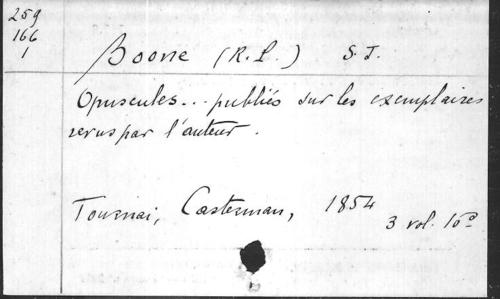 259
166
1
Boone (R.P.) S.J.
Opuscules... publiés sur les exemplaires
revus par l'auteur.
Tournai, Casterman, 1854
3 vol. 16º